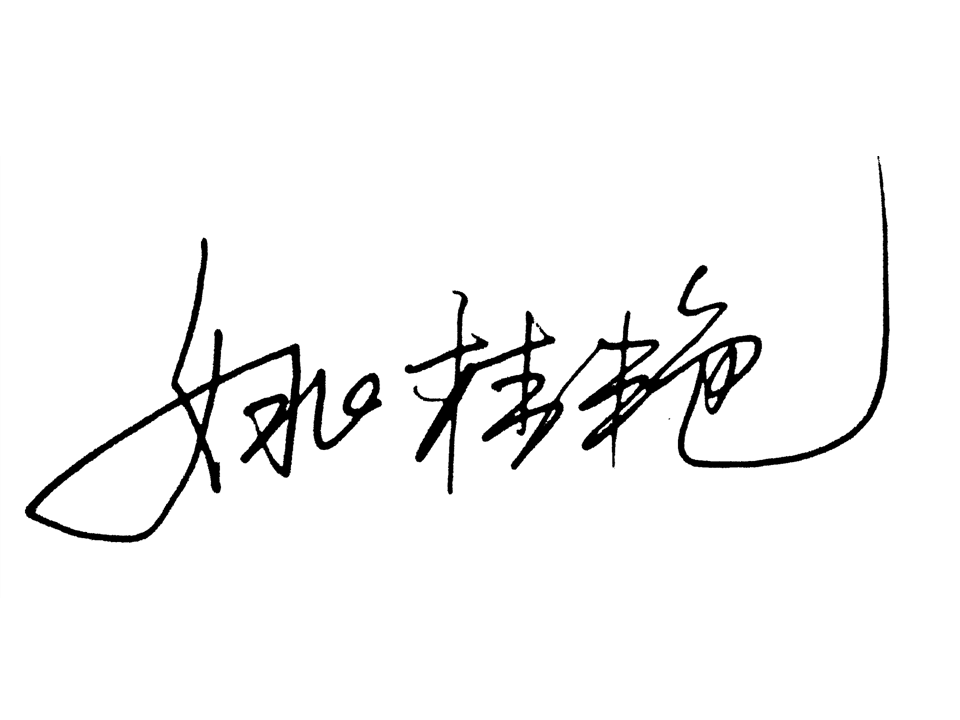 姚桂艳